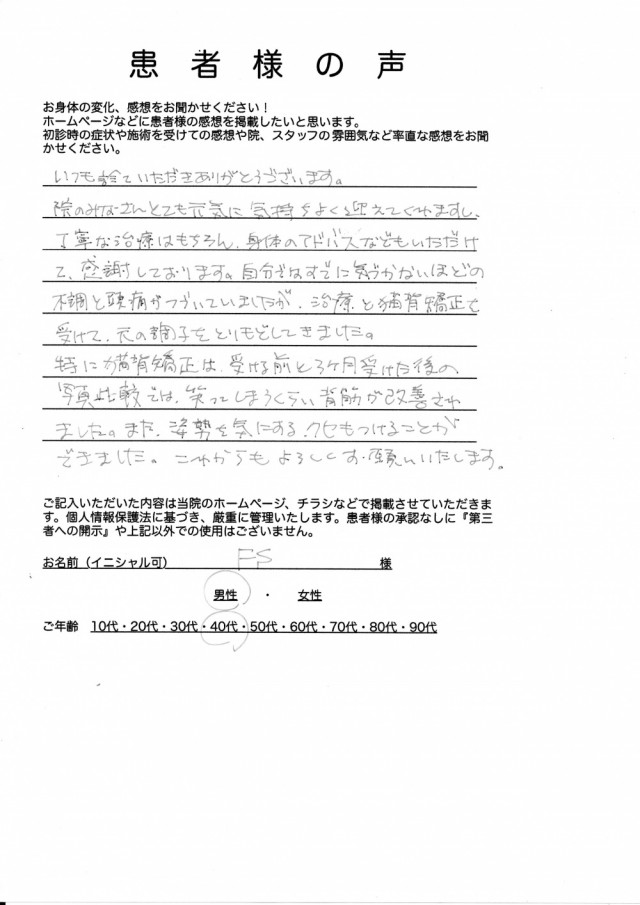 患者様の声
お身体の変化、感想をお聞かせください！
ホームページなどに患者様の感想を掲載したいと思います。
初診時の症状や施術を受けての感想や院、スタッフの雰囲気など率直な感想をお聞
かせください。
いつも診ていただきありがとうございます。
院のみなさんとても元気に気持ちよく迎えてくれますし、
丁寧な治療はもちろん、身体のアドバスなどもいただけ
て、感謝しております。自分ではすでに気づかないほどの
不調と頭痛がつづいていましたが、治療と猫背矯正を
受けて、元の調子をとりもどしてきました。
特に猫背矯正は、受ける前と3ヶ月受けた後の
写真比較では、笑ってしまうくらい背筋が改善され
ました。また、姿勢を気にするクセもつけることが
できました。これからもよろしくお願いいたします。
ご記入いただいた内容は当院のホームページ、チラシなどで掲載させていただきま
す。個人情報保護法に基づき、厳重に管理いたします。患者様の承認なしに『第三
者への開示』や上記以外での使用はございません。
お名前（イニシャル可） FS 様
男性 ・ 女性
ご年齢 10代・20代・30代・40代・50代・60代・70代・80代・90代